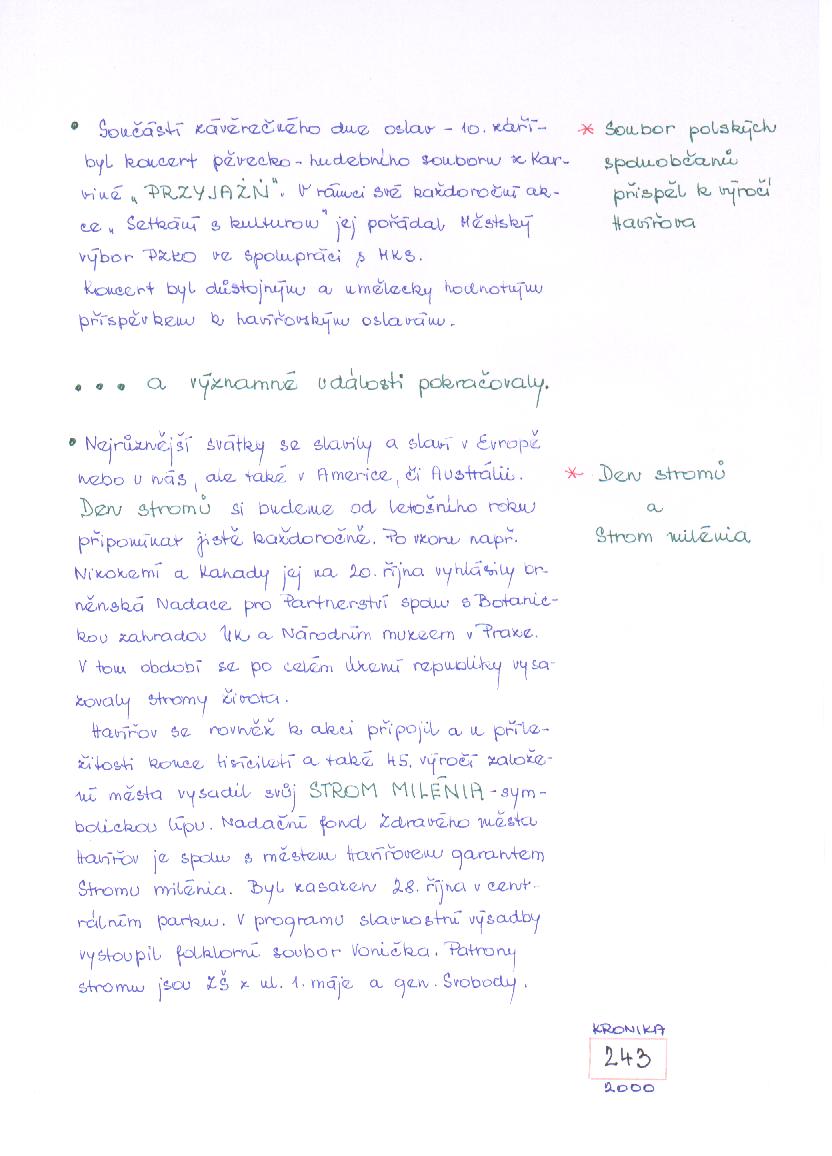 • Součástí závěrečného dne oslav – 10. září –
byl koncert pěvecko-hudebního souboru z Kar-
viné „PRZYJAŹŃ". V rámci své každoroční ak-
ce „Setkání s kulturou" jej pořádal Městský
výbor PZKO ve spolupráci s MKS.
Koncert byl důstojným a umělecky hodnotným
příspěvkem k havířovským oslavám.
* Soubor polských
spoluobčanů
přispěl k výročí
Havířova
... a významné události pokračovaly.
• Nejrůznější svátky se slavily a slaví v Evropě
nebo u nás, ale také v Americe, či Austrálii.
Den stromů si budeme od letošního roku
připomínat jistě každoročně. Po vzoru např.
Nizozemí a Kanady jej na 20. října vyhlásily br-
něnská Nadace pro Partnerství spolu s Botanic-
kou zahradou UK a Národním muzeem v Praze.
V tom období se po celém území republiky vysa-
zovaly stromy života.
* Den stromů
a
Strom milénia
Havířov se rovněž k akci připojil a u příle-
žitosti konce tisíciletí a také 45. výročí založe-
ní města vysadil svůj STROM MILÉNIA - sym-
bolickou lípu. Nadační fond Zdravého města
Havířov je spolu s městem Havířovem garantem
Stromu milénia. Byl zasazen 28. října v cent-
rálním parku. V programu slavnostní výsadby
vystoupil folklorní soubor Vonička. Patrony
stromu jsou ZŠ z ul. 1. máje a gen. Svobody.
KRONIKA
243
2000